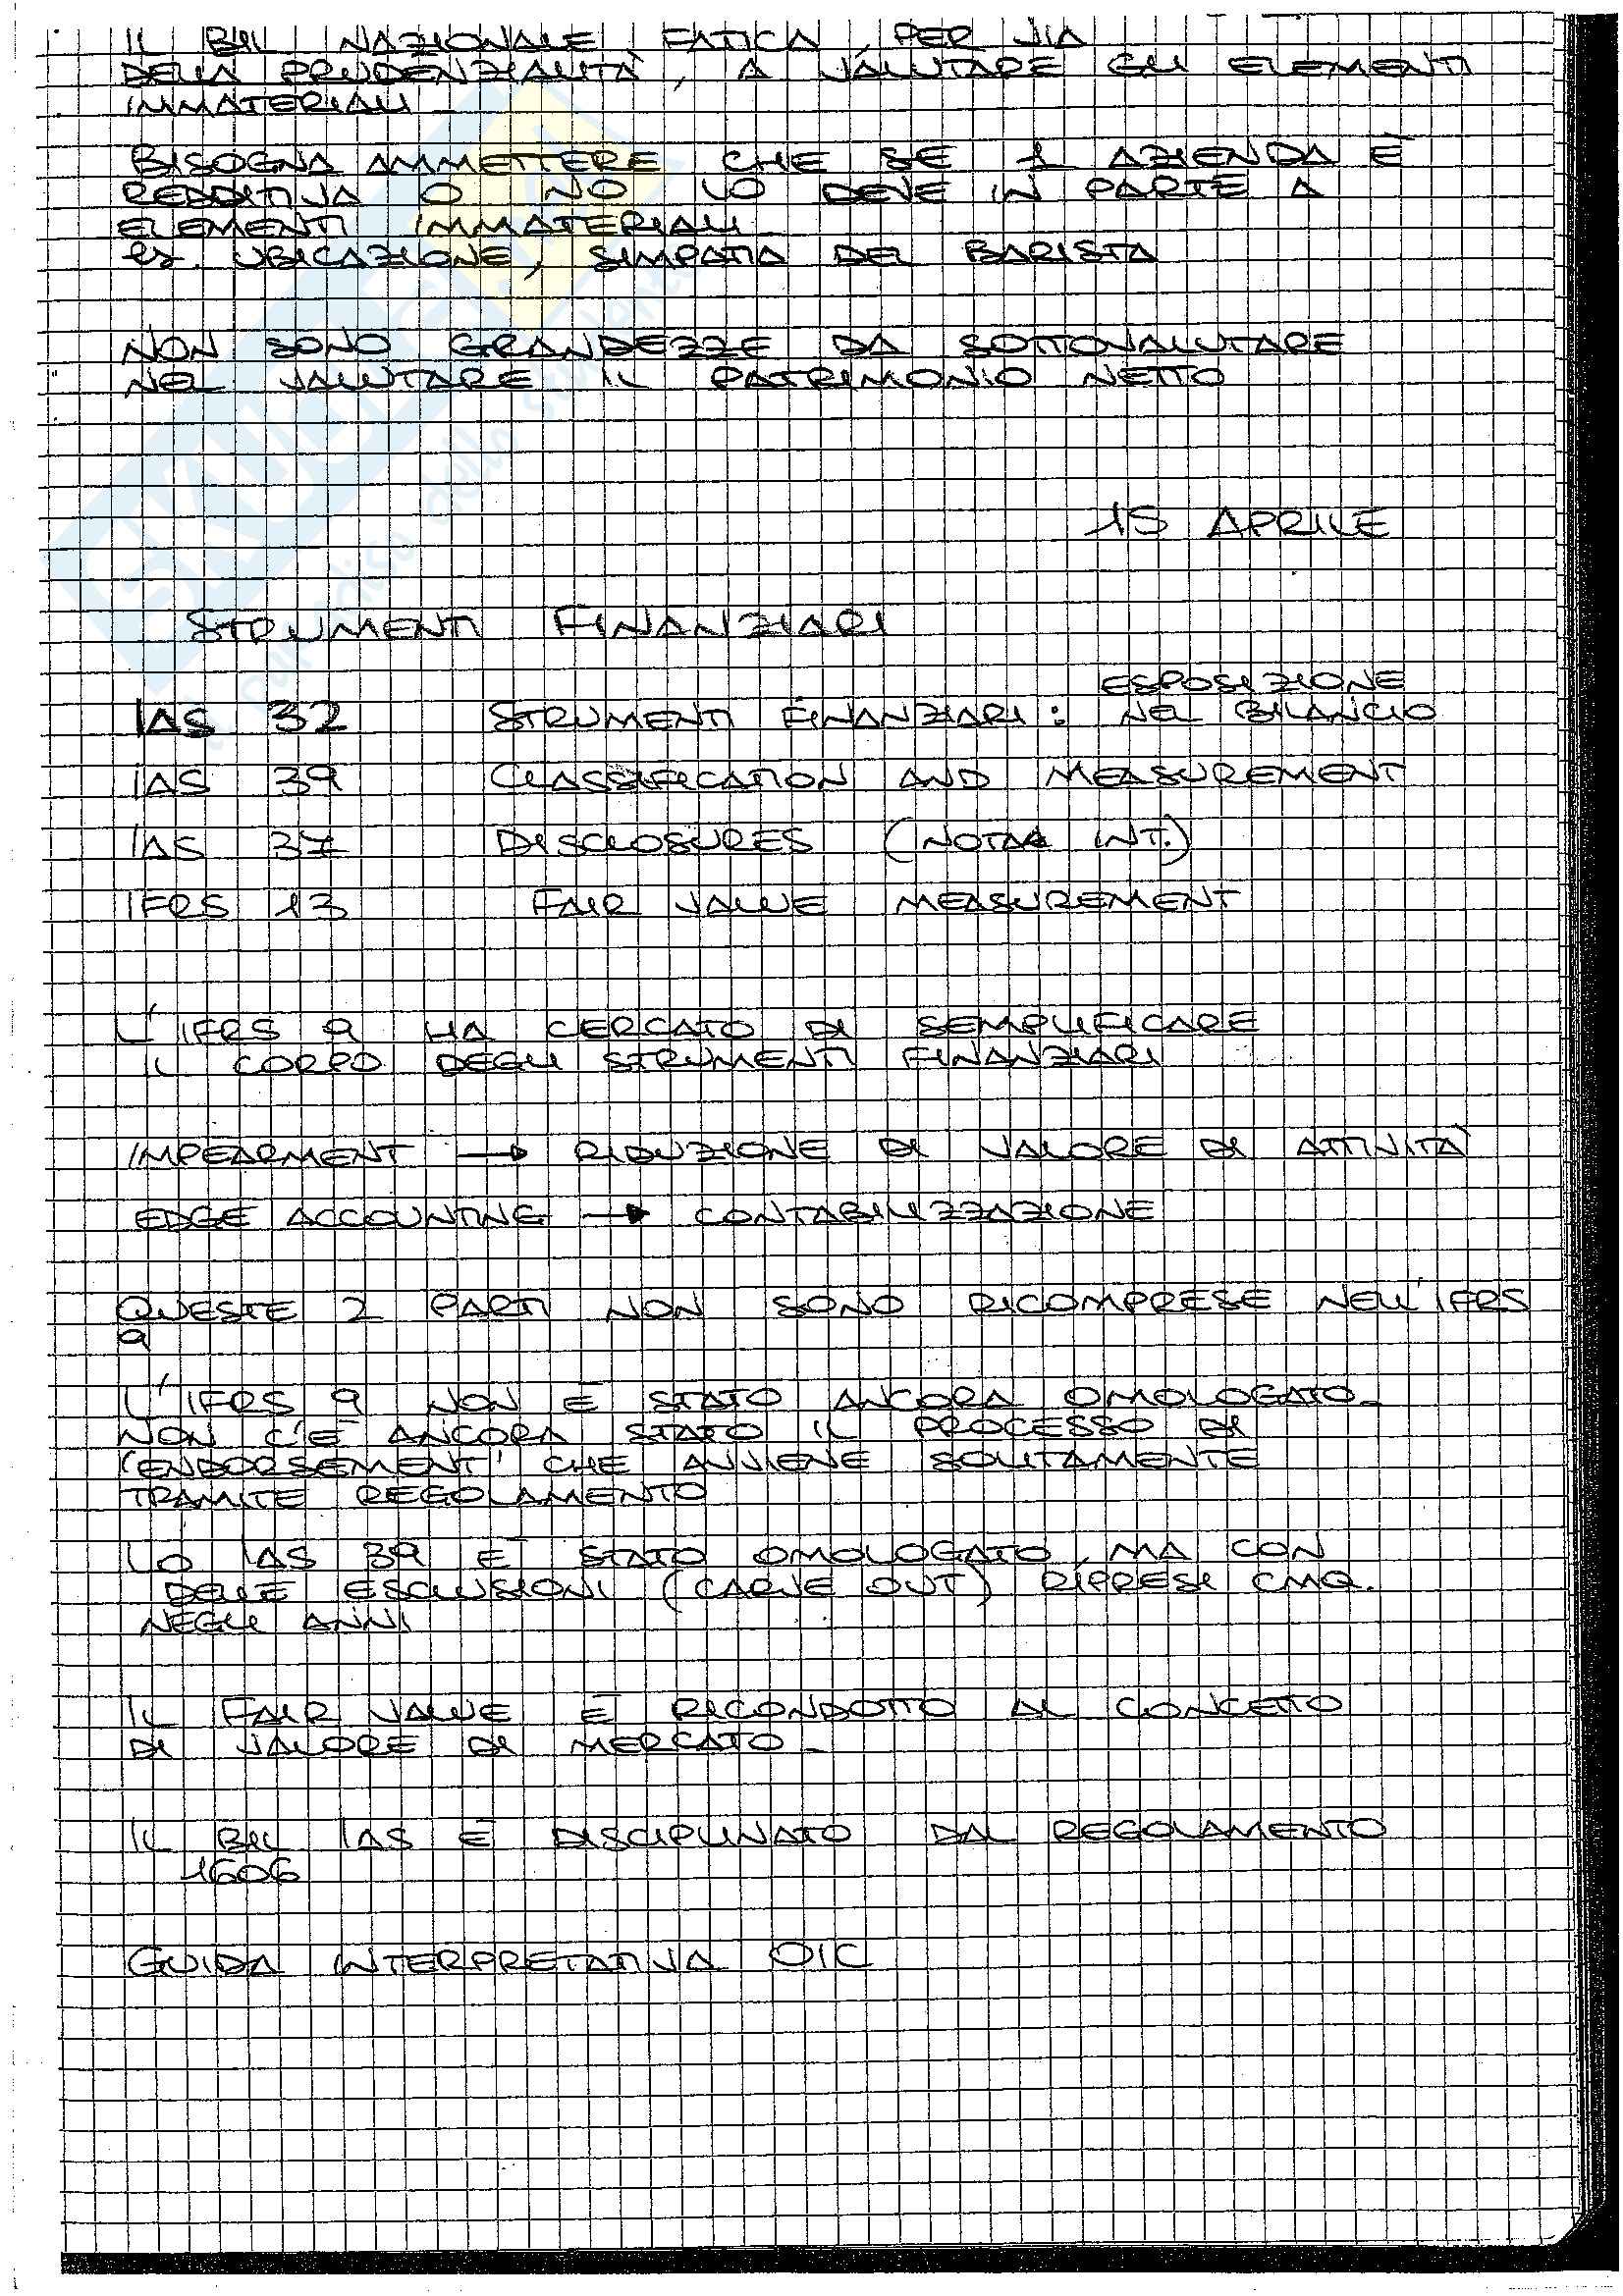 IL BIL NAZIONALE FATICA, PER VIA
DELLA PRUDENZIALITÀ, A VALUTARE GLI ELEMENTI
IMMATERIALI
BISOGNA AMMETTERE CHE SE 1 AZIENDA È
REDDITIVA O NO LO DEVE IN PARTE A
ELEMENTI IMMATERIALI
es. UBICAZIONE, SIMPATIA DEL BARISTA
NON SONO GRANDEZZE DA SOTTOVALUTARE
NEL VALUTARE IL PATRIMONIO NETTO
15 APRILE
STRUMENTI FINANZIARI
ESPOSIZIONE
IAS 32 STRUMENTI FINANZIARI: NEL BILANCIO
IAS 39 CLASSIFICATION AND MEASUREMENT
IAS 37 DISCLOSURES (NOTA INT.)
IFRS 13 FAIR VALUE MEASUREMENT
L'IFRS 9 HA CERCATO DI SEMPLIFICARE
IL CORPO DEGLI STRUMENTI FINANZIARI
IMPEARMENT → RIDUZIONE DI VALORE DI ATTIVITÀ
EDGE ACCOUNTING → CONTABILIZZAZIONE
QUESTE 2 PARTI NON SONO RICOMPRESE NELL'IFRS
9
L'IFRS 9 NON È STATO ANCORA OMOLOGATO.
NON C'È ANCORA STATO IL PROCESSO DI
'ENDORSEMENT' CHE AVVIENE SOLITAMENTE
TRAMITE REGOLAMENTO
LO IAS 39 È STATO OMOLOGATO, MA CON
DELLE ESCLUSIONI (CARVE OUT) RIPRESI CMQ.
NEGLI ANNI
IL FAIR VALUE È RICONDOTTO AL CONCETTO
DI VALORE DI MERCATO.
IL BIL IAS È DISCIPLINATO DAL REGOLAMENTO
1606
GUIDA INTERPRETATIVA OIC